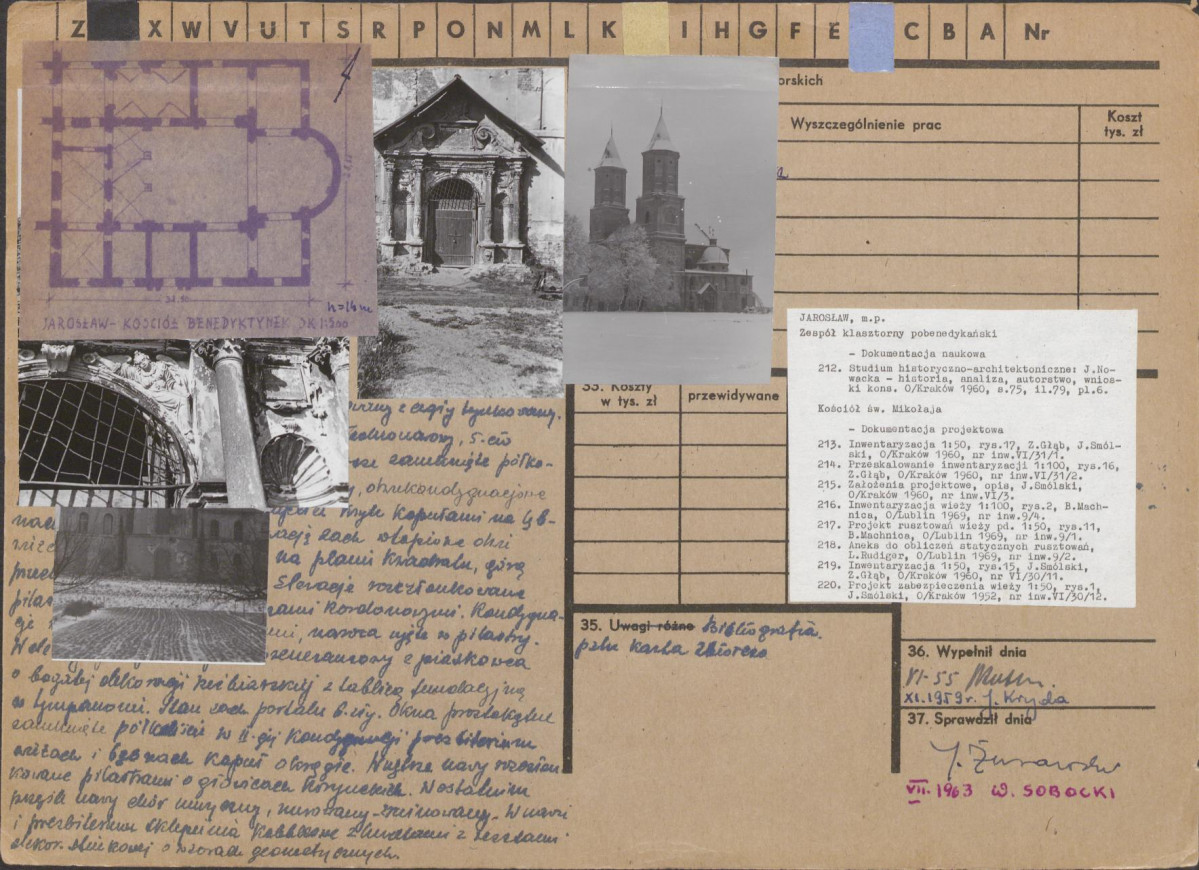 Z X W V U T S R P O N M L K I H G F E C B A Nr
orskich
Wyszczególnienie prac
Koszt
tys. zł
34.90
h=16m
JAROSŁAW - KOŚCIÓŁ BENEDYKTYNEK SK 1:500
JAROSŁAW, m.p.
Zespół klasztorny pobenedykański
- Dokumentacja naukowa
212. Studium historyczno-architektoniczne: J.No-
wacka - historia, analiza, autorstwo, wnios-
ki kons. O/Kraków 1960, s.75, il.79, pl.6.
Kościół św. Mikołaja
- Dokumentacja projektowa
213. Inwentaryzacja 1:50, rys.17, Z.Głąb, J.Smól-
ski, O/Kraków 1960, nr inw.VI/31/1.
214. Przeskalowanie inwentaryzacji 1:100, rys.16,
Z.Głąb, O/Kraków 1960, nr inw.VI/31/2.
215. Założenia projektowe, opis, J.Smólski,
O/Kraków 1960, nr inw.VI/3.
216. Inwentaryzacja wieży 1:100, rys.2, B.Mach-
nica, O/Lublin 1969, nr inw.9/4.
217. Projekt rusztowań wieży pd. 1:50, rys.11,
B.Machnica, O/Lublin 1969, nr inw.9/1.
218. Aneks do obliczeń statycznych rusztowań,
L.Rudiger, O/Lublin 1969, nr inw.9/2.
219. Inwentaryzacja 1:50, rys.15, J.Smólski,
Z.Głąb, O/Kraków 1960, nr VI/30/11.
220. Projekt zabezpieczenia wieży 1:50, rys.1,
J.Smólski, O/Kraków 1952, nr inw.VI/30/12.
33. Koszty
w tys. zł
przewidywane
z cegły tynkowany.
Jednonawowy, 5-cio
zamknięte półko-
, dwukondygnacjowe
kopułami na ośb-
dach
na planie kwadratu, górą
Elewacje rozczłonkowane
kordonowymi. Kondygna-
, nawa ujęte w pilastry.
renesansowy z piaskowca
o bogatej dekoracji rzeźbiarskiej z tablicą fundacyjną
w tympanonie. Stan zach portalu b.zły. Okna prostokątne
zamknięte półkoliście w II-giej kondygnacji prezbiterium
wieżach i kopuł okrągłe. Wnętrze nawy rozczłon-
kowane pilastrami o głowicach korynckich. W ostatnim
przęśle nawy chór muzyczny, murowany - zrujnowany. W nawie
i prezbiterium sklepienia kolebkowe z lunetami z resztami
dekor. stiukowej o wzorach geometrycznych.
35. Uwagi różne Bibliografia
patrz karta zbiorcza
36. Wypełnił dnia
VI-55
XI.1959r. J. Kryda
37. Sprawdził dnia
VII.1963 W. SOBOCKI